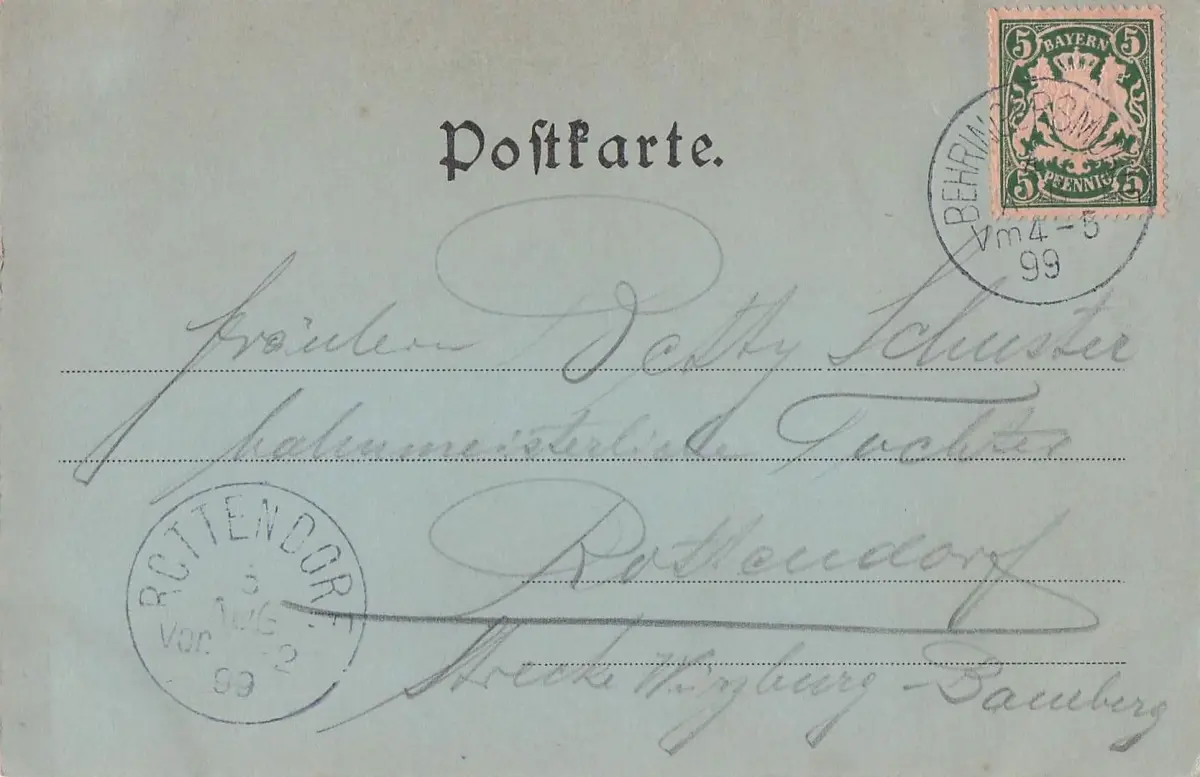 5 BAYERN 5
5 PFENNIG 5
Vm 4-5
99
Postkarte.
Fräulein Betty Schuster
bahnmeisterliche Tochter
Rottendorf
Strecke Würzburg-Bamberg
ROTTENDORF
3
AUG
Vor. -12
99